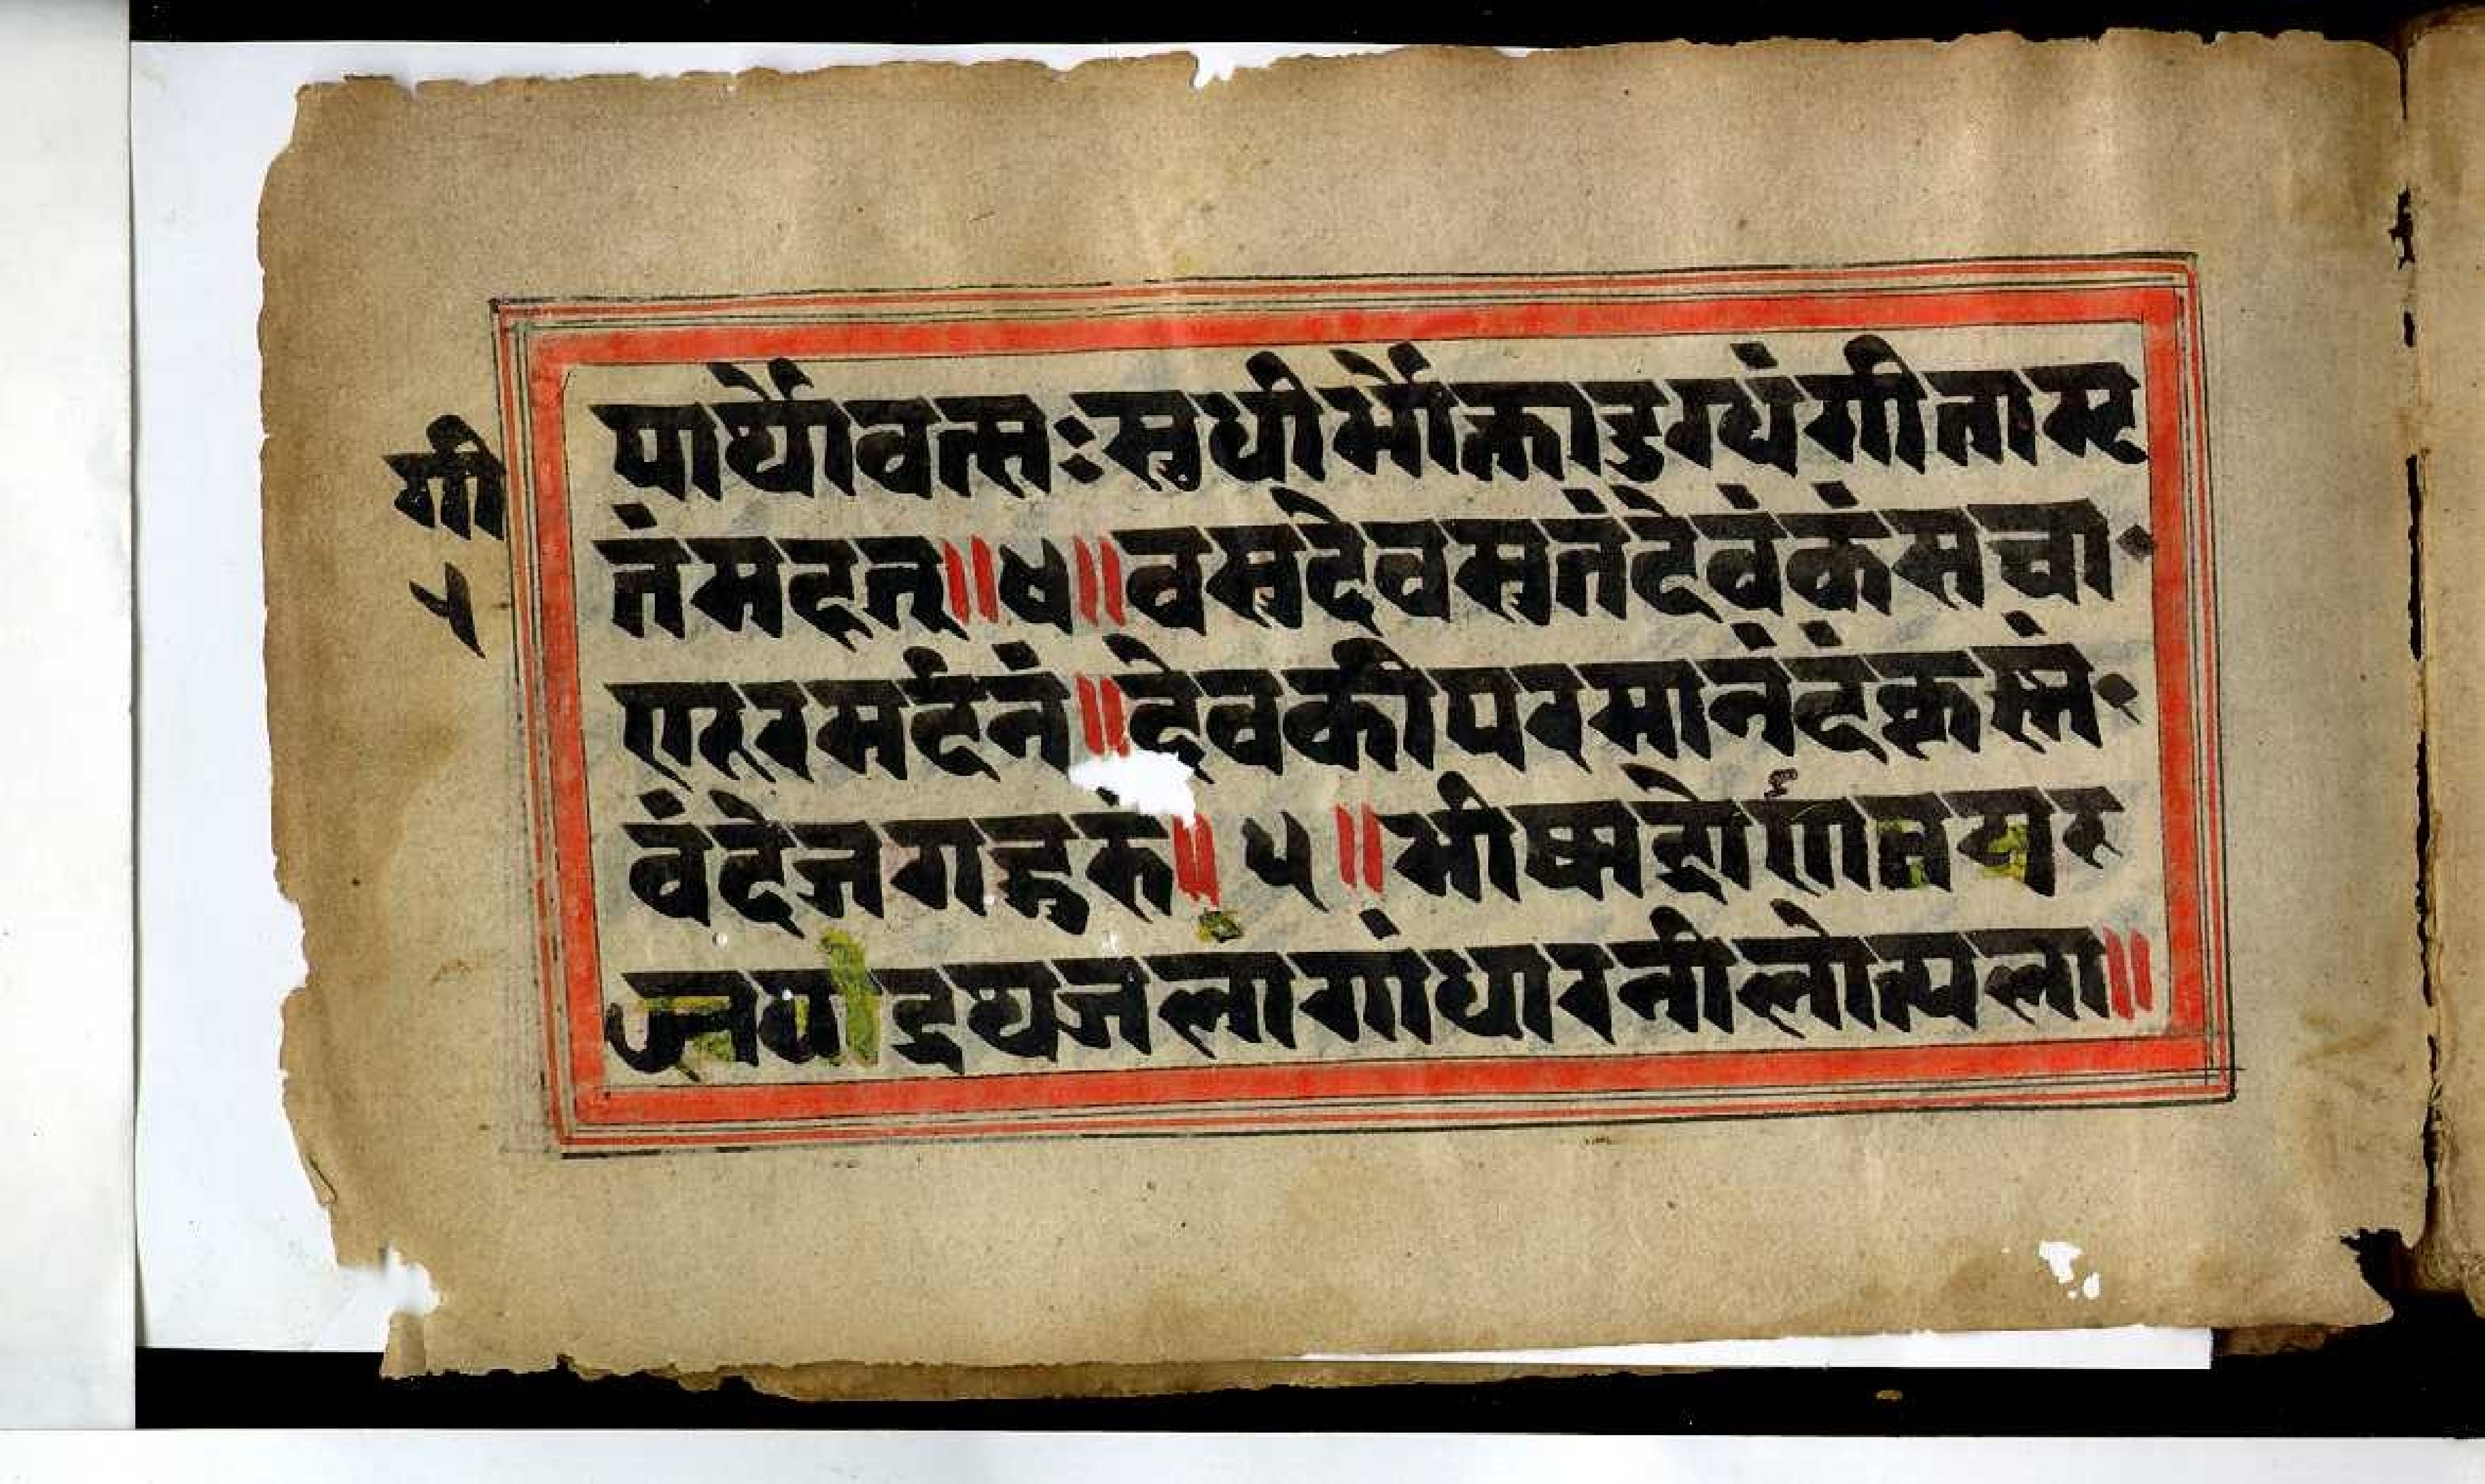 पार्थोवत्सःसुधीर्भोक्तादुग्धंगीतामृ
तंमहत्॥४॥वसुदेवसुतंदेवंकंसचा
णूरमर्दनं॥देवकीपरमानंदंकृस्नं
वंदेजगद्गुरुं॥५॥भीष्मद्रोणतटाज
यद्रथजलागांधारनीलोत्पला॥
गी
५